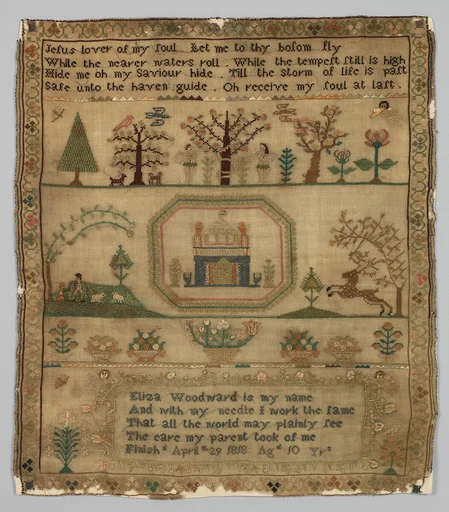 Jesus lover of my soul Let me to thy bosom fly
While the nearer waters roll . While the tempest still is high
Hide me oh my Saviour hide . Till the storm of life is past
Safe unto the haven guide . Oh receive my soul at last .
Eliza Woodward is my name
And with my needle I work the same
That all the world may plainly see
The care my parent took of me
Finishd April 29 1818 Agd 10 Yrs